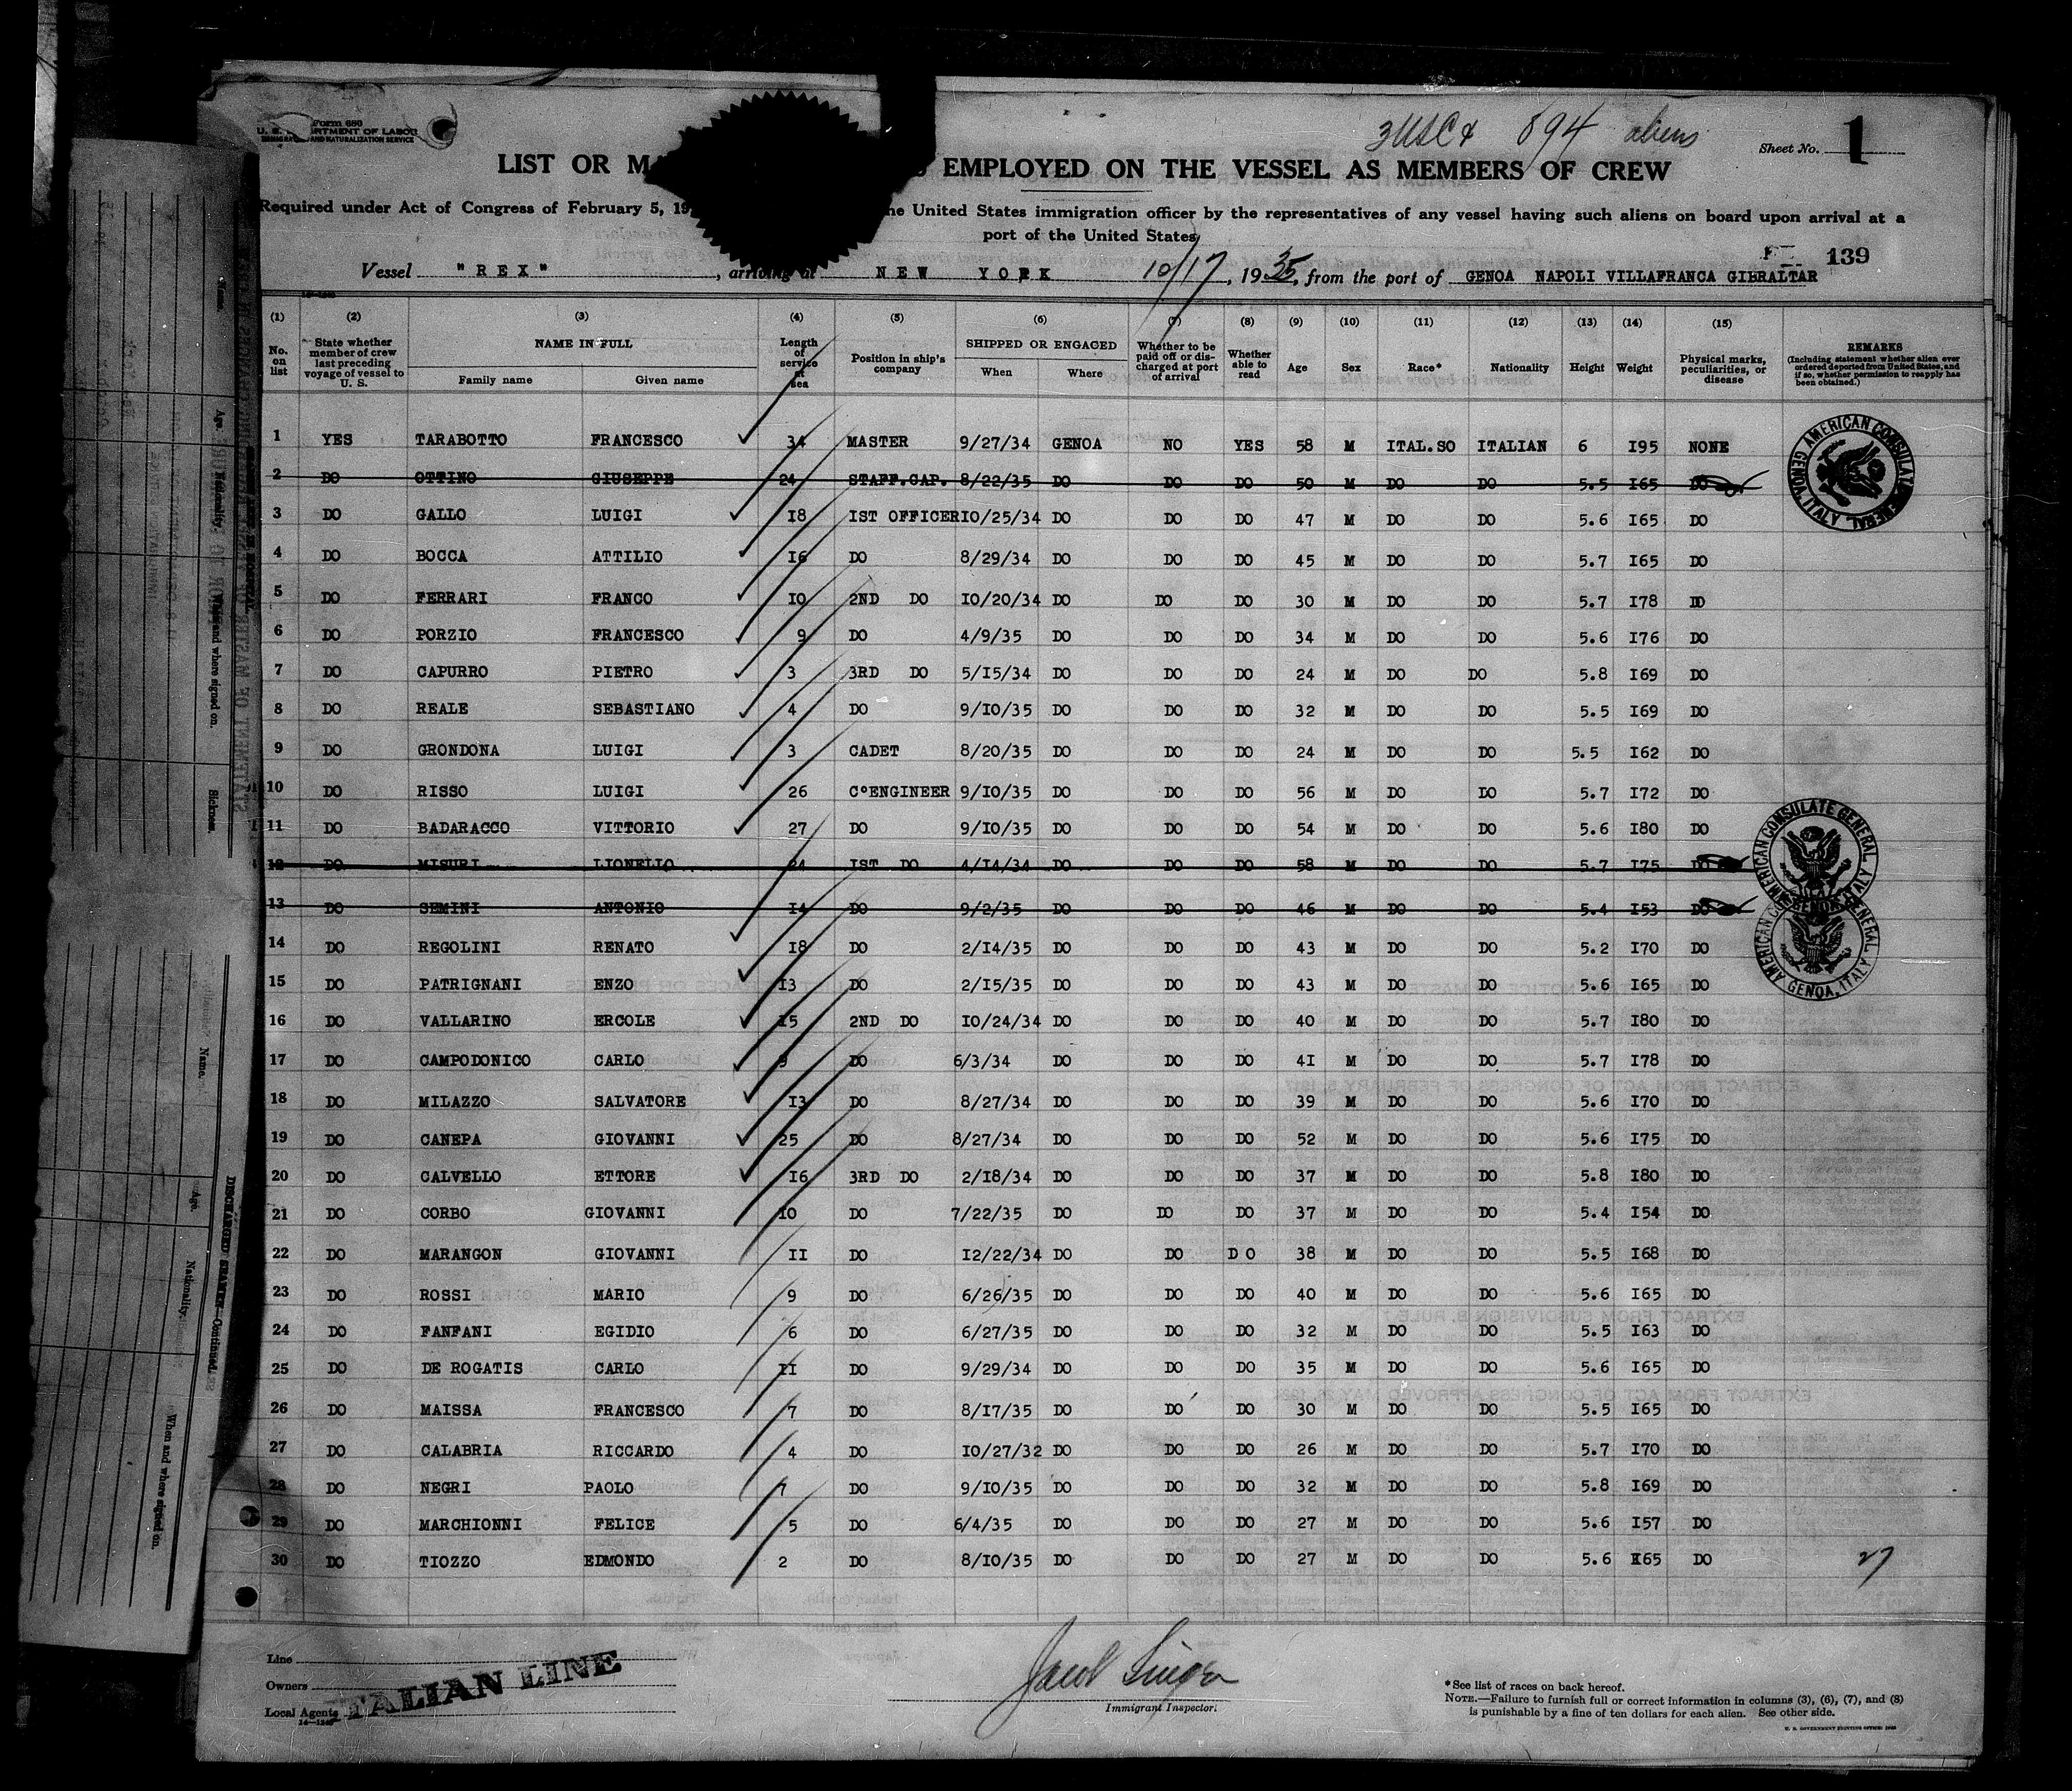 3 USC & 894 aliens
Form 680
U. S. DEPARTMENT OF LABOR
IMMIGRATION AND NATURALIZATION SERVICE
Sheet No. 1
LIST OR MA S EMPLOYED ON THE VESSEL AS MEMBERS OF CREW
Required under Act of Congress of February 5, 19 he United States immigration officer by the representatives of any vessel having such aliens on board upon arrival at a
port of the United States
139
Vessel "REX", arriving at NEW YORK 10/17, 1935, from the port of GENOA NAPOLI VILLAFRANCA GIBRALTAR
(1) (2) (3) (4) (5) (6) (7) (8) (9) (10) (11) (12) (13) (14) (15)
No. on list State whether member of crew last preceding voyage of vessel to U. S. NAME IN FULL Family name Given name Length of service at sea Position in ship's company SHIPPED OR ENGAGED When Where Whether to be paid off or discharged at port of arrival Whether able to read Age Sex Race* Nationality Height Weight Physical marks, peculiarities, or disease REMARKS (Including statement whether alien ever ordered deported from United States, and if so, whether permission to reapply has been obtained.)
1 YES TARABOTTO FRANCESCO 34 MASTER 9/27/34 GENOA NO YES 58 M ITAL.SO ITALIAN 6 I95 NONE
2 DO OTTINO GIUSEPPE 24 STAFF.CAP. 8/22/35 DO DO DO 50 M DO DO 5.5 I65 DO
3 DO GALLO LUIGI I8 IST OFFICER IO/25/34 DO DO DO 47 M DO DO 5.6 I65 DO
4 DO BOCCA ATTILIO I6 DO 8/29/34 DO DO DO 45 M DO DO 5.7 I65 DO
5 DO FERRARI FRANCO IO 2ND DO IO/20/34 DO DO DO 30 M DO DO 5.7 I78 DO
6 DO PORZIO FRANCESCO 9 DO 4/9/35 DO DO DO 34 M DO DO 5.6 I76 DO
7 DO CAPURRO PIETRO 3 3RD DO 5/I5/34 DO DO DO 24 M DO DO 5.8 I69 DO
8 DO REALE SEBASTIANO 4 DO 9/IO/35 DO DO DO 32 M DO DO 5.5 I69 DO
9 DO GRONDONA LUIGI 3 CADET 8/20/35 DO DO DO 24 M DO DO 5.5 I62 DO
10 DO RISSO LUIGI 26 C°ENGINEER 9/IO/35 DO DO DO 56 M DO DO 5.7 I72 DO
11 DO BADARACCO VITTORIO 27 DO 9/IO/35 DO DO DO 54 M DO DO 5.6 I80 DO
12 DO MISURI LIONELLO 24 IST DO 4/I4/34 DO DO DO 58 M DO DO 5.7 I75 DO
13 DO SEMINI ANTONIO I4 DO 9/2/35 DO DO DO 46 M DO DO 5.4 I53 DO
14 DO REGOLINI RENATO I8 DO 2/I4/35 DO DO DO 43 M DO DO 5.2 I70 DO
15 DO PATRIGNANI ENZO I3 DO 2/I5/35 DO DO DO 43 M DO DO 5.6 I65 DO
16 DO VALLARINO ERCOLE I5 2ND DO IO/24/34 DO DO DO 40 M DO DO 5.7 I80 DO
17 DO CAMPODONICO CARLO 9 DO 6/3/34 DO DO DO 4I M DO DO 5.7 I78 DO
18 DO MILAZZO SALVATORE I3 DO 8/27/34 DO DO DO 39 M DO DO 5.6 I70 DO
19 DO CANEPA GIOVANNI 25 DO 8/27/34 DO DO DO 52 M DO DO 5.6 I75 DO
20 DO CALVELLO ETTORE I6 3RD DO 2/I8/34 DO DO DO 37 M DO DO 5.8 I80 DO
21 DO CORBO GIOVANNI IO DO 7/22/35 DO DO DO 37 M DO DO 5.4 I54 DO
22 DO MARANGON GIOVANNI II DO I2/22/34 DO DO D O 38 M DO DO 5.5 I68 DO
23 DO ROSSI MARIO 9 DO 6/26/35 DO DO DO 40 M DO DO 5.6 I65 DO
24 DO FANFANI EGIDIO 6 DO 6/27/35 DO DO DO 32 M DO DO 5.5 I63 DO
25 DO DE ROGATIS CARLO II DO 9/29/34 DO DO DO 35 M DO DO 5.6 I65 DO
26 DO MAISSA FRANCESCO 7 DO 8/I7/35 DO DO DO 30 M DO DO 5.5 I65 DO
27 DO CALABRIA RICCARDO 4 DO IO/27/32 DO DO DO 26 M DO DO 5.7 I70 DO
28 DO NEGRI PAOLO 7 DO 9/IO/35 DO DO DO 32 M DO DO 5.8 I69 DO
29 DO MARCHIONNI FELICE 5 DO 6/4/35 DO DO DO 27 M DO DO 5.6 I57 DO
30 DO TIOZZO EDMONDO 2 DO 8/IO/35 DO DO DO 27 M DO DO 5.6 I65 DO 27
AMERICAN CONSULATE GENERAL GENOA, ITALY
AMERICAN CONSULATE GENERAL GENOA, ITALY
AMERICAN CONSULATE GENERAL GENOA, ITALY
Line
Owners
Local Agents
ITALIAN LINE
Jacob Singer
Immigrant Inspector.
*See list of races on back hereof.
NOTE.—Failure to furnish full or correct information in columns (3), (6), (7), and (8)
is punishable by a fine of ten dollars for each alien. See other side.
U. S. GOVERNMENT PRINTING OFFICE
DISCHARGED SEAMEN—Continued
Name. Age. Nationality. When and where signed on. Sickness.
Name. Age. Nationality. When and where signed on.